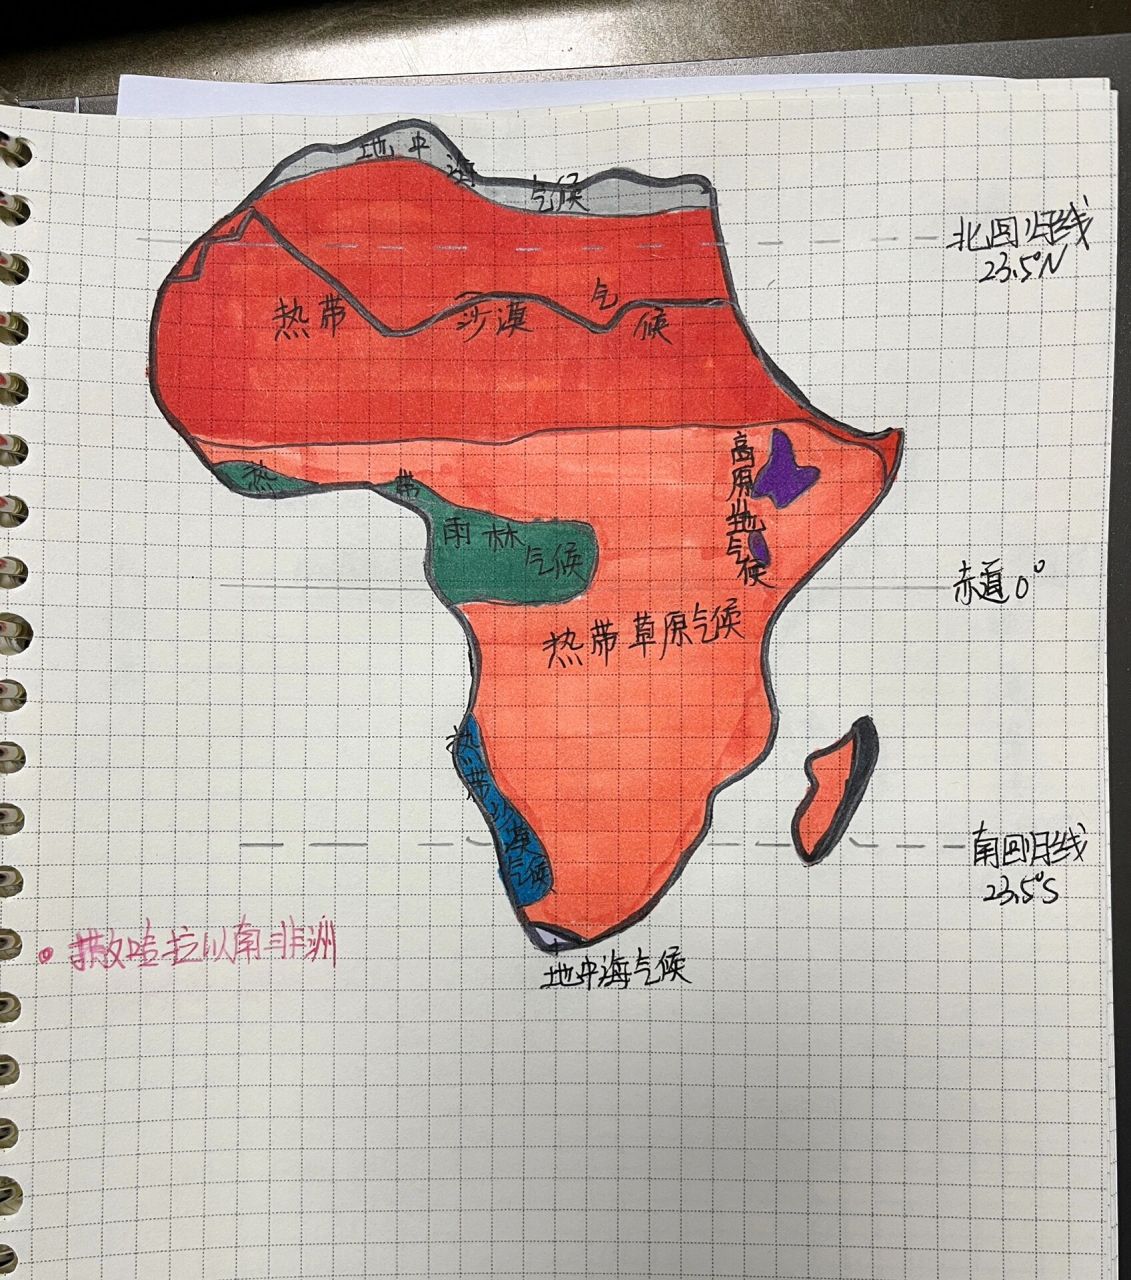 地中海气候
北回归线
23.5°N
热带沙漠气候
高原山地气候
热带雨林气候
赤道0°
热带草原气候
热带沙漠气候
南回归线
23.5°S
撒哈拉以南非洲
地中海气候